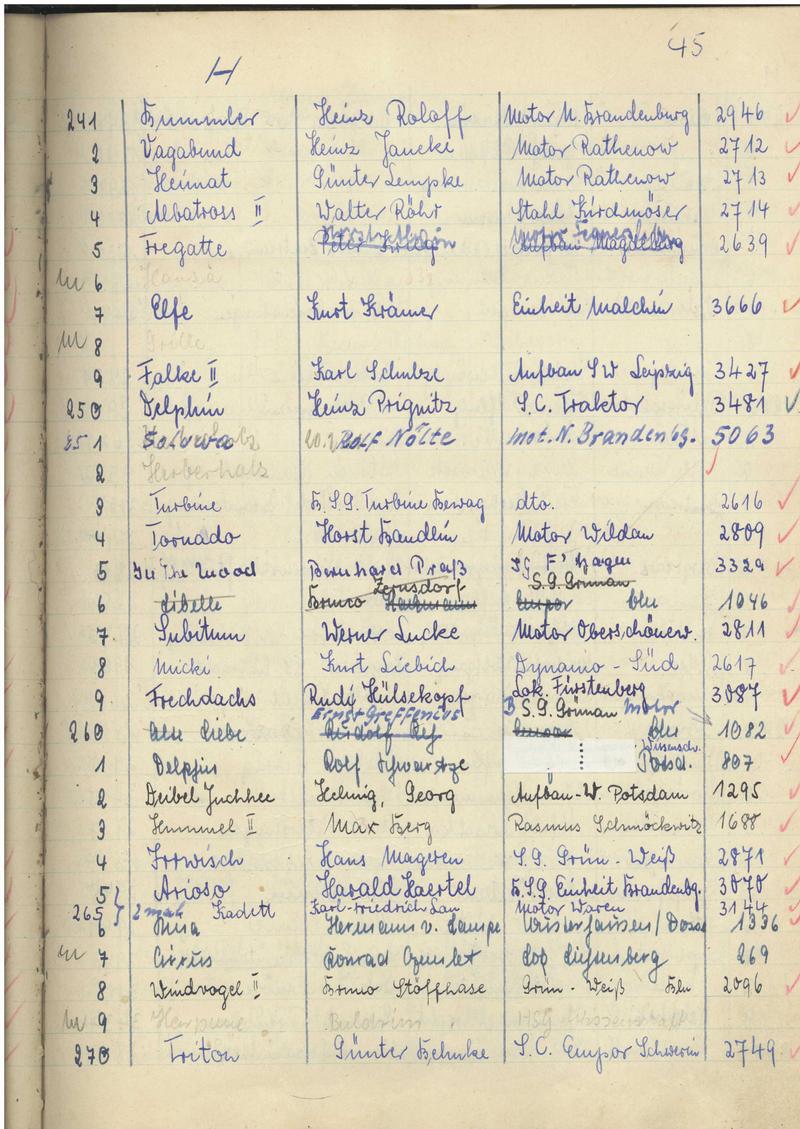 45
H
241 Bummler Heinz Roloff Motor N. Brandenburg 2946
2 Vagabund Heinz Jancke Motor Rathenow 2712
3 Heimat Günter Lempke Motor Rathenow 2713
4 Albatross II Walter Röhr Stahl Kirchmöser 2714
5 Fregatte Peter Aufbau Magdeburg 2639
6 Hansa
7 Elfe Kurt Krämer Einheit Malchin 3666
8 Grille
9 Falke II Karl Schulze Aufbau SW Leipzig 3427
250 Delphin Heinz Prignitz S.C. Traktor 3481
251 Rolf Nölte Mot. N. Brandenbg. 5063
2 Haberholz
3 Turbine B.S.G. Turbine Bewag dto. 2616
4 Tornado Horst Bandlin Motor Wildau 2809
5 In The Mood Bernhard Praß SG F' Hagen 3329
Zernsdorf S.G. Grünau
6 Libelle Bruno Empor Bln 1046
7 Subitum Werner Lucke Motor Oberschönew. 2811
8 Micki Kurt Liebich Dynamo - Süd 2617
9 Frechdachs Rudi Hülsekopf Lok. Fürstenberg 3087
Ernst Greffenius B.S.G. Grünau Motor
260 Alte Liebe Rudolf Empor Bln 1082
Wissensch.
1 Delphin Rolf Schwartze Potsd. 807
2 Deibel Juchhee Helmig, Georg Aufbau-W. Potsdam 1295
3 Hummel II Max Berg Rasmus Schmöckwitz 1688
4 Irrwisch Hans Mageren S.G. Grün-Weiß 2871
5 Arioso Harald Haertel B.S.G. Einheit Brandenbg. 3070
265 2 mal Kadett Karl-Friedrich Lau Motor Waren 3144
6 Hermann v. Lampe Wusterhausen/Dosse 1336
7 Cirrus Konrad Lok Lichtenberg 269
8 Windvogel II Bruno Stöffhase Grün-Weiß Bln 2096
9 Harpune HSG Wissenschaft
270 Triton Günter Behnke S.C. Empor Schwerin 2749